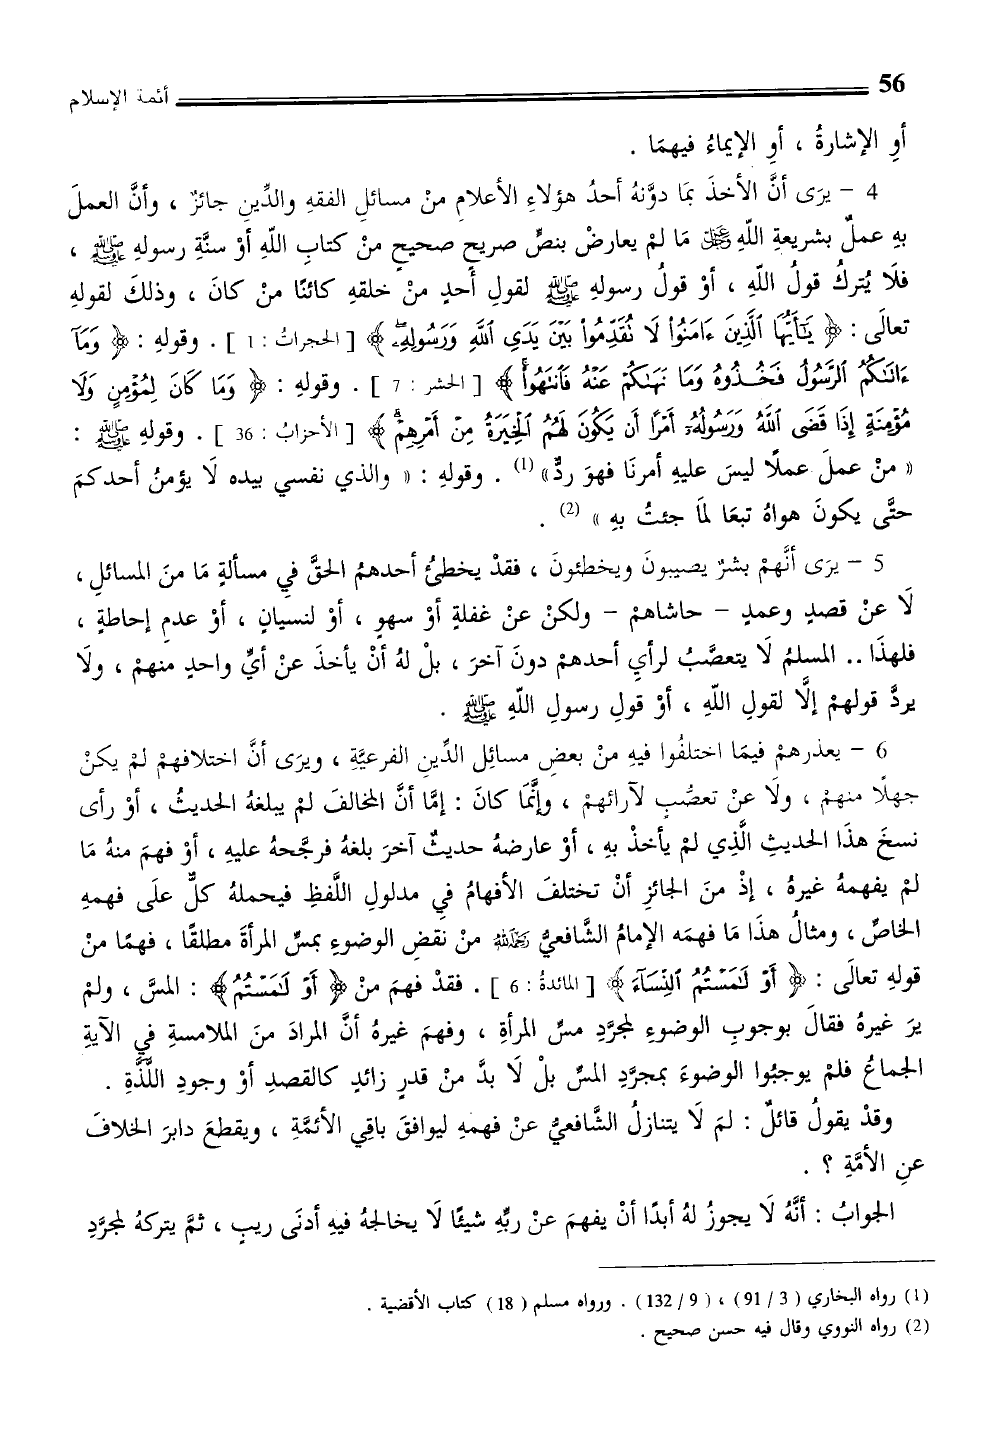 56 أئمة الإسلام
أوِ الإشارةُ ، أوِ الإيماءُ فيهمَا .
4 – يرَى أنَّ الأخذَ بمَا دوَّنهُ أحدُ هؤلاءِ الأعلامِ منْ مسائلِ الفقهِ والدِّينِ جائزٌ ، وأنَّ العملَ
بهِ عملٌ بشريعةِ اللّهِ ﷻ مَا لمْ يعارضْ بنصٍّ صريحٍ صحيحٍ منْ كتابِ اللّهِ أوْ سنَّةِ رسولهِ ﷺ ،
فلَا يُتركُ قولُ اللّهِ ، أوْ قولُ رسولهِ ﷺ لقولِ أحدٍ منْ خلقهِ كائنًا منْ كانَ ، وذلكَ لقولهِ
تعالَى : ﴿ يَٰٓأَيُّهَا ٱلَّذِينَ ءَامَنُواْ لَا تُقَدِّمُواْ بَيْنَ يَدَيِ ٱللَّهِ وَرَسُولِهِۦۖ ﴾ [ الحجراتُ : 1 ] . وقولهِ : ﴿ وَمَآ
ءَاتَىٰكُمُ ٱلرَّسُولُ فَخُذُوهُ وَمَا نَهَىٰكُمْ عَنْهُ فَٱنتَهُواْۚ ﴾ [ الحشر : 7 ] . وقولهِ : ﴿ وَمَا كَانَ لِمُؤْمِنٍ وَلَا
مُؤْمِنَةٍ إِذَا قَضَى ٱللَّهُ وَرَسُولُهُۥٓ أَمْرًا أَن يَكُونَ لَهُمُ ٱلْخِيَرَةُ مِنْ أَمْرِهِمْۗ ﴾ [ الأحزابُ : 36 ] . وقولهِ ﷺ :
« منْ عملَ عملًا ليسَ عليهِ أمرنَا فهوَ ردٌّ» (1) . وقولهِ : « والذي نفسي بيده لَا يؤمنُ أحدكمَ
حتَّى يكونَ هواهُ تبعَا لمَا جئتُ بهِ » (2) .
5 – يرَى أنَّهمْ بشرٌ يصيبونَ ويخطئونَ ، فقدْ يخطئُ أحدهمُ الحقَّ في مسألةٍ مَا منَ المسائلِ ،
لَا عنْ قصدٍ وعمدٍ – حاشاهمْ – ولكنْ عنْ غفلةٍ أوْ سهوٍ ، أوْ لنسيانٍ ، أوْ عدمِ إحاطةٍ ،
فلهذَا .. المسلمُ لَا يتعصَّبُ لرأيِ أحدهمْ دونَ آخرَ ، بلْ لهُ أنْ يأخذَ عنْ أيِّ واحدٍ منهمْ ، ولَا
يردَّ قولهمْ إلَّا لقولِ اللّهِ ، أوْ قولِ رسولِ اللّهِ ﷺ .
6 – يعذرهمْ فيمَا اختلفُوا فيهِ منْ بعضِ مسائلِ الدِّينِ الفرعيَّةِ ، ويرَى أنَّ اختلافهمْ لمْ يكنْ
جهلًا منهمْ ، ولَا عنْ تعصُّبٍ لآرائهمْ ، وإنَّمَا كانَ : إمَّا أنَّ المخالفَ لمْ يبلغهُ الحديثُ ، أوْ رأى
نسخَ هذَا الحديثِ الَّذِي لمْ يأخذْ بهِ ، أوْ عارضهُ حديثٌ آخرَ بلغهُ فرجَّحهُ عليهِ ، أوْ فهمَ منهُ مَا
لمْ يفهمهُ غيرهُ ، إذْ منَ الجائزِ أنْ تختلفَ الأفهامُ في مدلولِ اللَّفظِ فيحملهُ كلٌّ علَى فهمهِ
الخاصِّ ، ومثالُ هذَا مَا فهمَه الإمامُ الشَّافعيُّ رَحِمَهُ اللهُ منْ نقضِ الوضوءِ بمسِّ المرأةَ مطلقًا ، فهمًا منْ
قولهِ تعالَى : ﴿ أَوْ لَٰمَسْتُمُ ٱلنِّسَآءَ ﴾ [ المائدةُ : 6 ] . فقدْ فهمَ منْ ﴿ أَوْ لَٰمَسْتُمُ ﴾ : المسَّ ، ولمْ
يرَ غيرهُ فقالَ بوجوبِ الوضوءِ لمجرَّدِ مسِّ المرأةِ ، وفهمَ غيرهُ أنَّ المرادَ منَ الملامسةِ في الآيةِ
الجماعُ فلمْ يوجبُوا الوضوءَ بمجرَّدِ المسِّ بلْ لَا بدَّ منْ قدرٍ زائدٍ كالقصدِ أوْ وجودِ اللَّذَّةِ .
وقدْ يقولُ قائلٌ : لمَ لَا يتنازلُ الشَّافعيُّ عنْ فهمهِ ليوافقَ باقِي الأئمَّةِ ، ويقطعَ دابرَ الخلافَ
عنِ الأمَّةِ ؟ .
الجوابُ : أنَّهُ لَا يجوزُ لهُ أبدًا أنْ يفهمَ عنْ ربِّهِ شيئًا لَا يخالجهُ فيهِ أدنَى ريبٍ ، ثمَّ يتركهُ لمجرَّدِ
(1) رواه البخاري ( 3 / 91 ) ، ( 9 / 132 ) . ورواه مسلم ( 18 ) كتاب الأقضية .
(2) رواه النووي وقال فيه حسن صحيح .